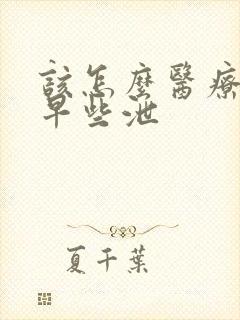 該怎麼醫療
早些泄
夏千葉